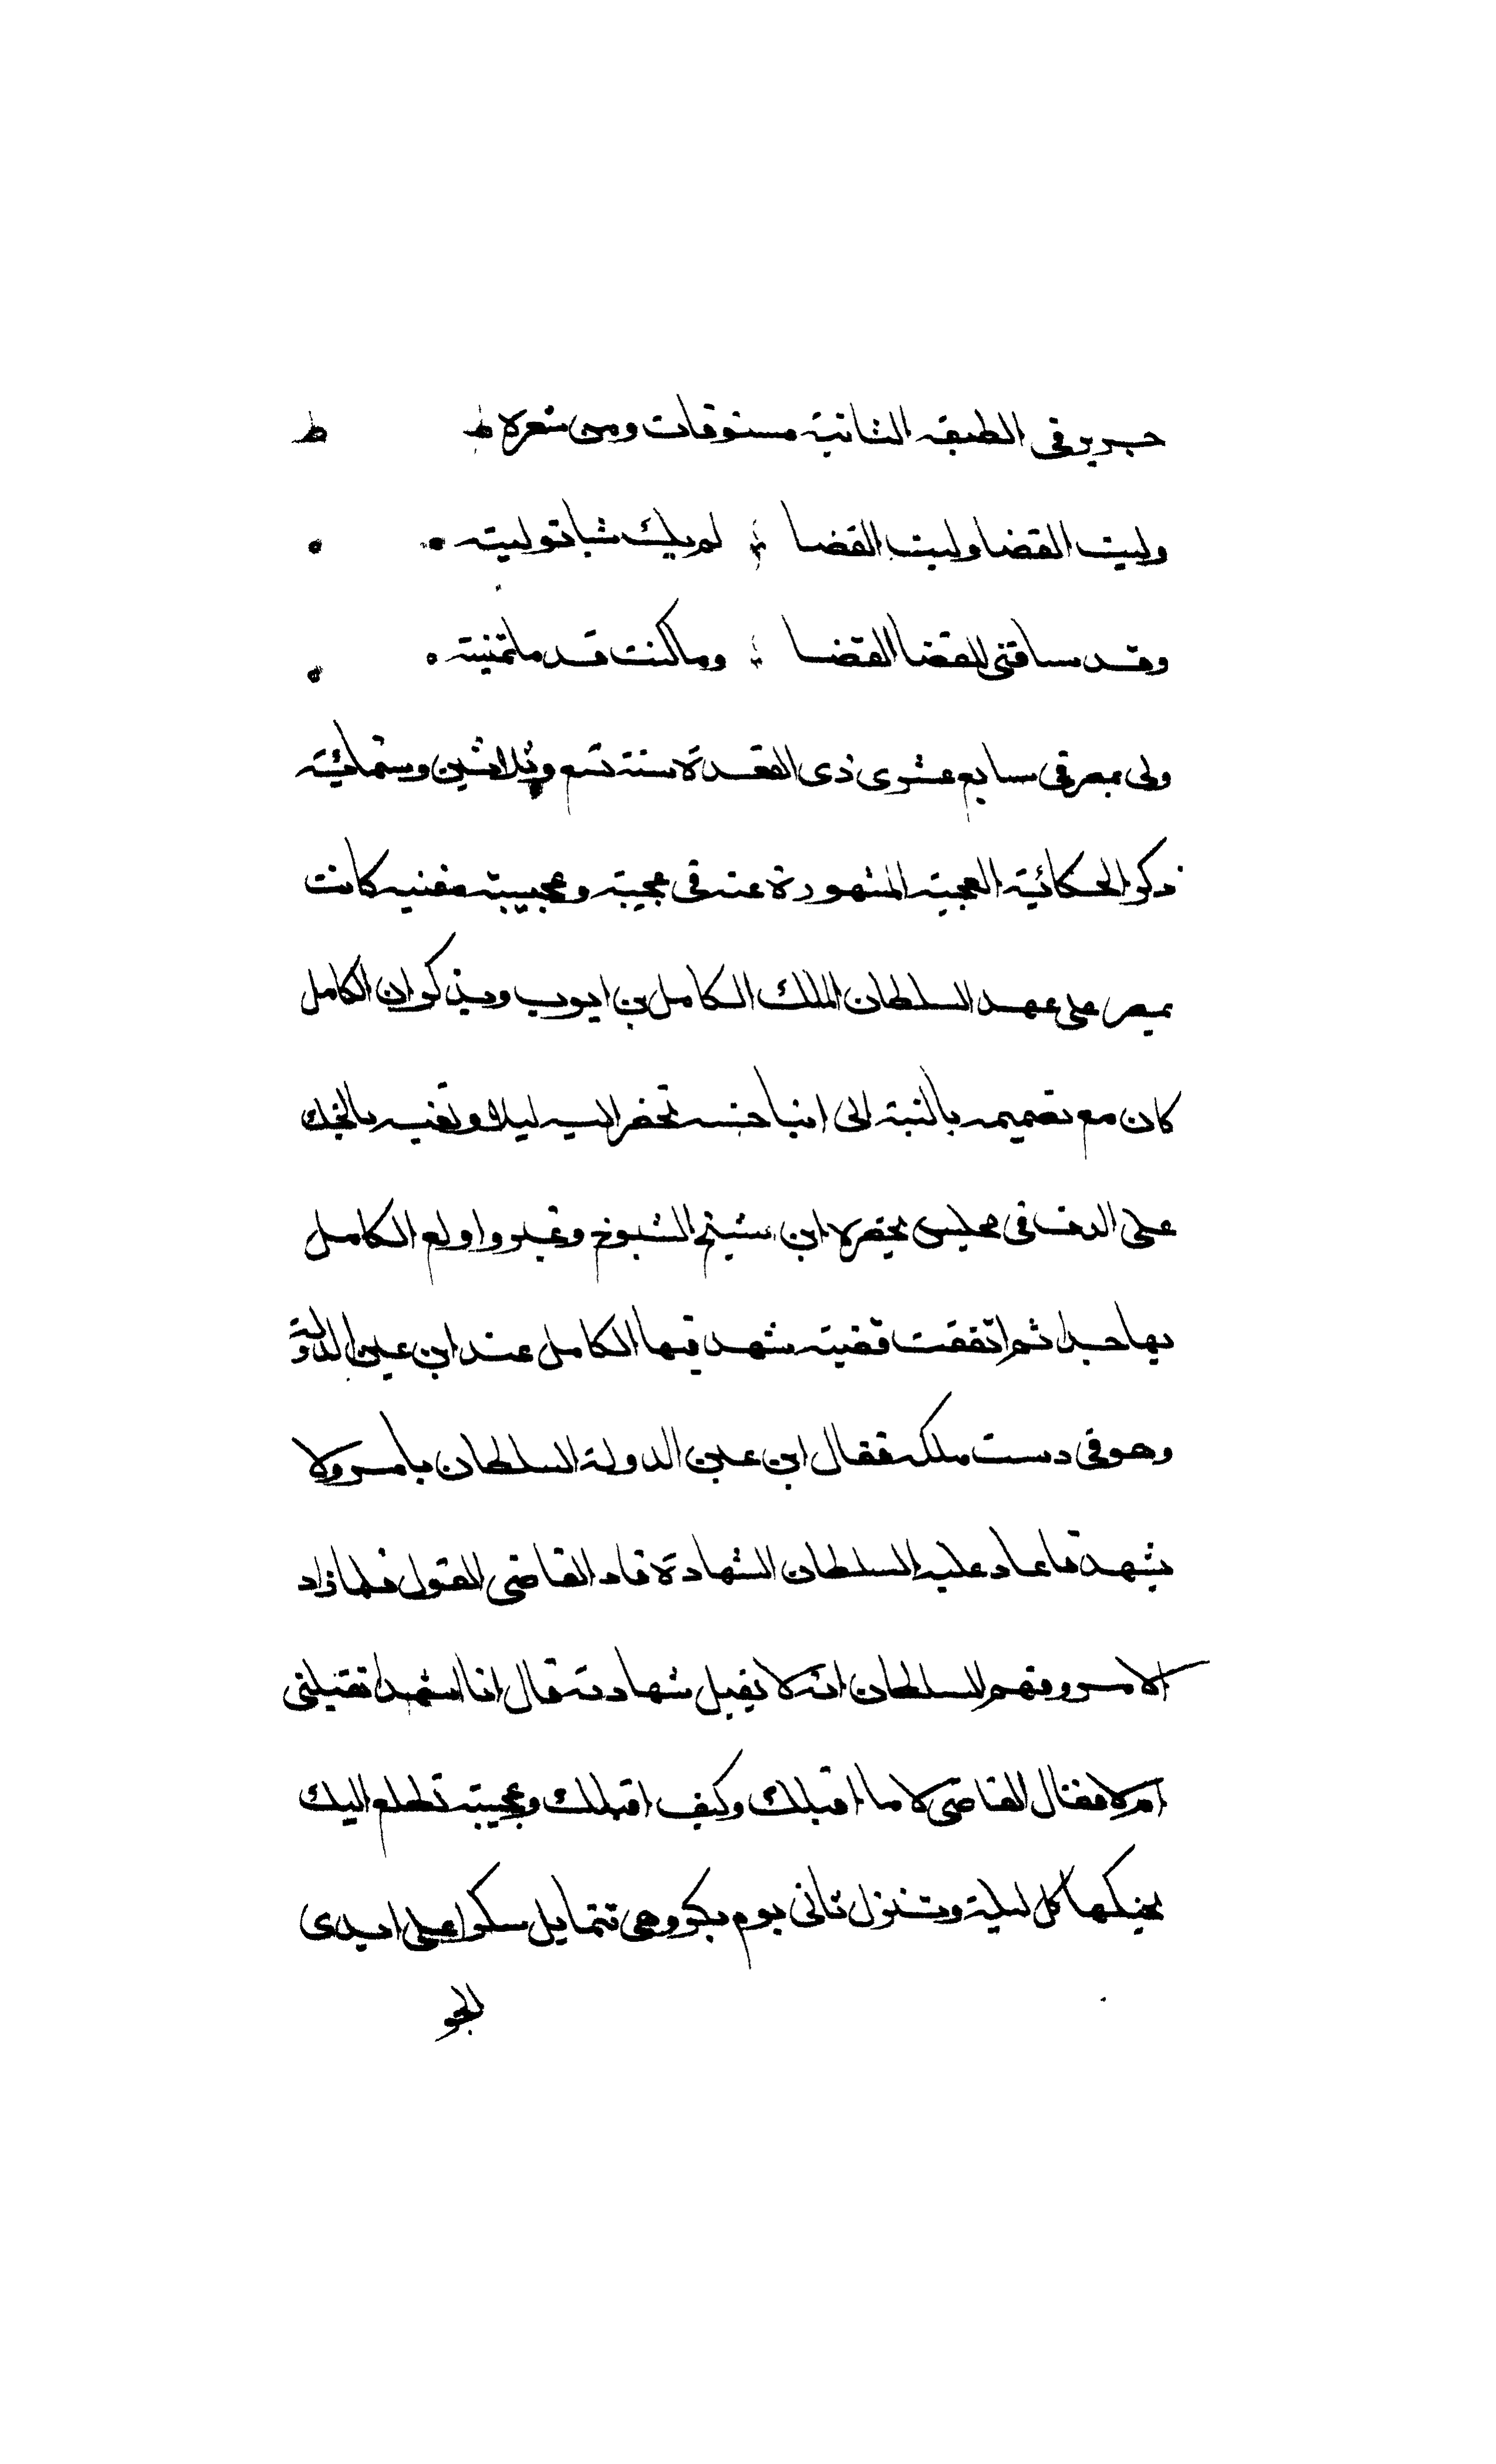 جرير في الطبقه الثانية مستوفات ومن شعره
وليت القضا وليت القضا لم يك شيا توليته
وقد ساقني للقضا القضا وما كنت قدما تمنيته
ولي بمصر في سابع عشري ذي القعدة سنة تسع وثلاثين وستمائية
ذكر الحكائية العجيبة المشهورة عنه في عجيبة وعجيبة مغنيه كانت
بمصر على عهد السلطان الملك الكامل بن ايوب ويذكر ان الكامل
كان مع تصميمه بالنسبة الى ابنا جنسه تحضر اليه ليلا وتغنيه بالجنك
على الدف في مجلس بحضرة ابن شيخ الشيوخ وغيره واولع الكامل
بها جدا ثم اتفقت قضية شهد فيها الكامل عند ابن عين الدولة
وهو في دست ملكه فقال ابن عين الدولة السلطان يأمر ولا
يشهد فاعاد عليه السلطان الشهادة فاد القاضي القول فلما زاد
الامر وفهم السلطان انه لا يقبل شهادته قال انا اشهد تقبلني
ام لا فقال القاضي لا ما اقبلك وكيف اقبلك وعجيبة تطلع اليك
بجنكها كل ليلة وتنزل ثاني يوم بكره وهي تتمايل سكرا على ايدي